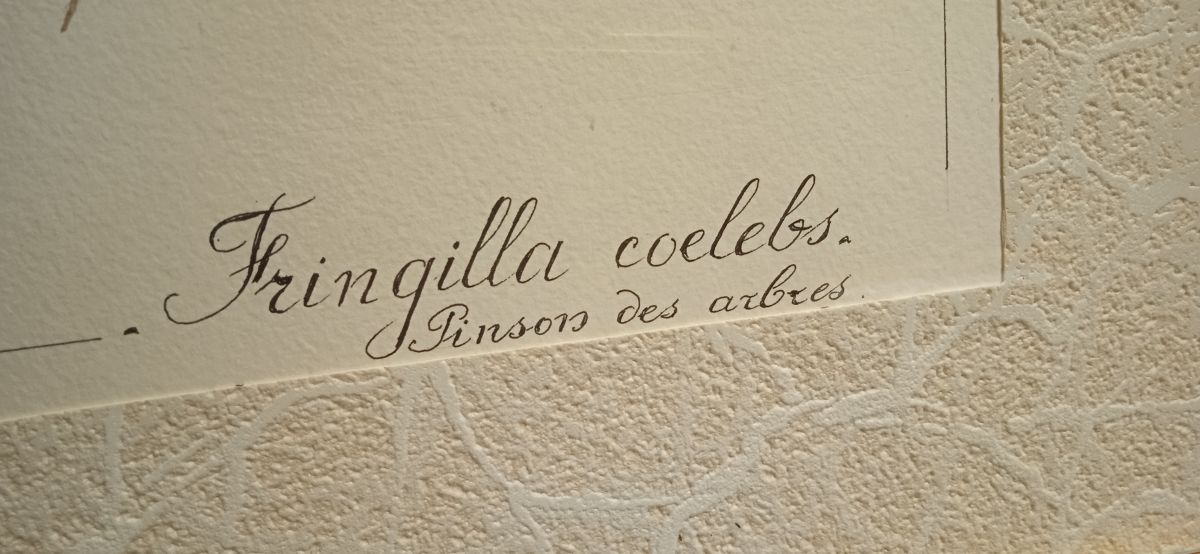 Fringilla coelebs.
Pinson des arbres.